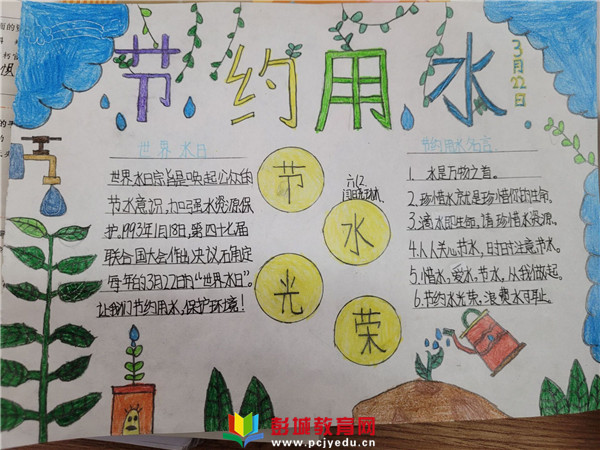 节约用水
3月22日
世界水日
世界水日宗旨是唤起公众的
节水意识，加强水资源保
护.1993年1月18日，第四十七届
联合国大会作出决议石角定
每年的3月22日为“世界水日”。
让我们节约用水，保护环境！
节
水
光
荣
六(2)
节约用水名言
1. 水是万物之首。
2. 珍惜水源就是珍惜你的生命。
3. 滴水即生命，请珍惜水资源。
4. 人人关心节水，日寸日寸注意节水。
5. 惜水，爱水，节水，从我做起。
6. 节约水光荣，浪费水可耻。
彭城教育网
www.pcjyedu.cn